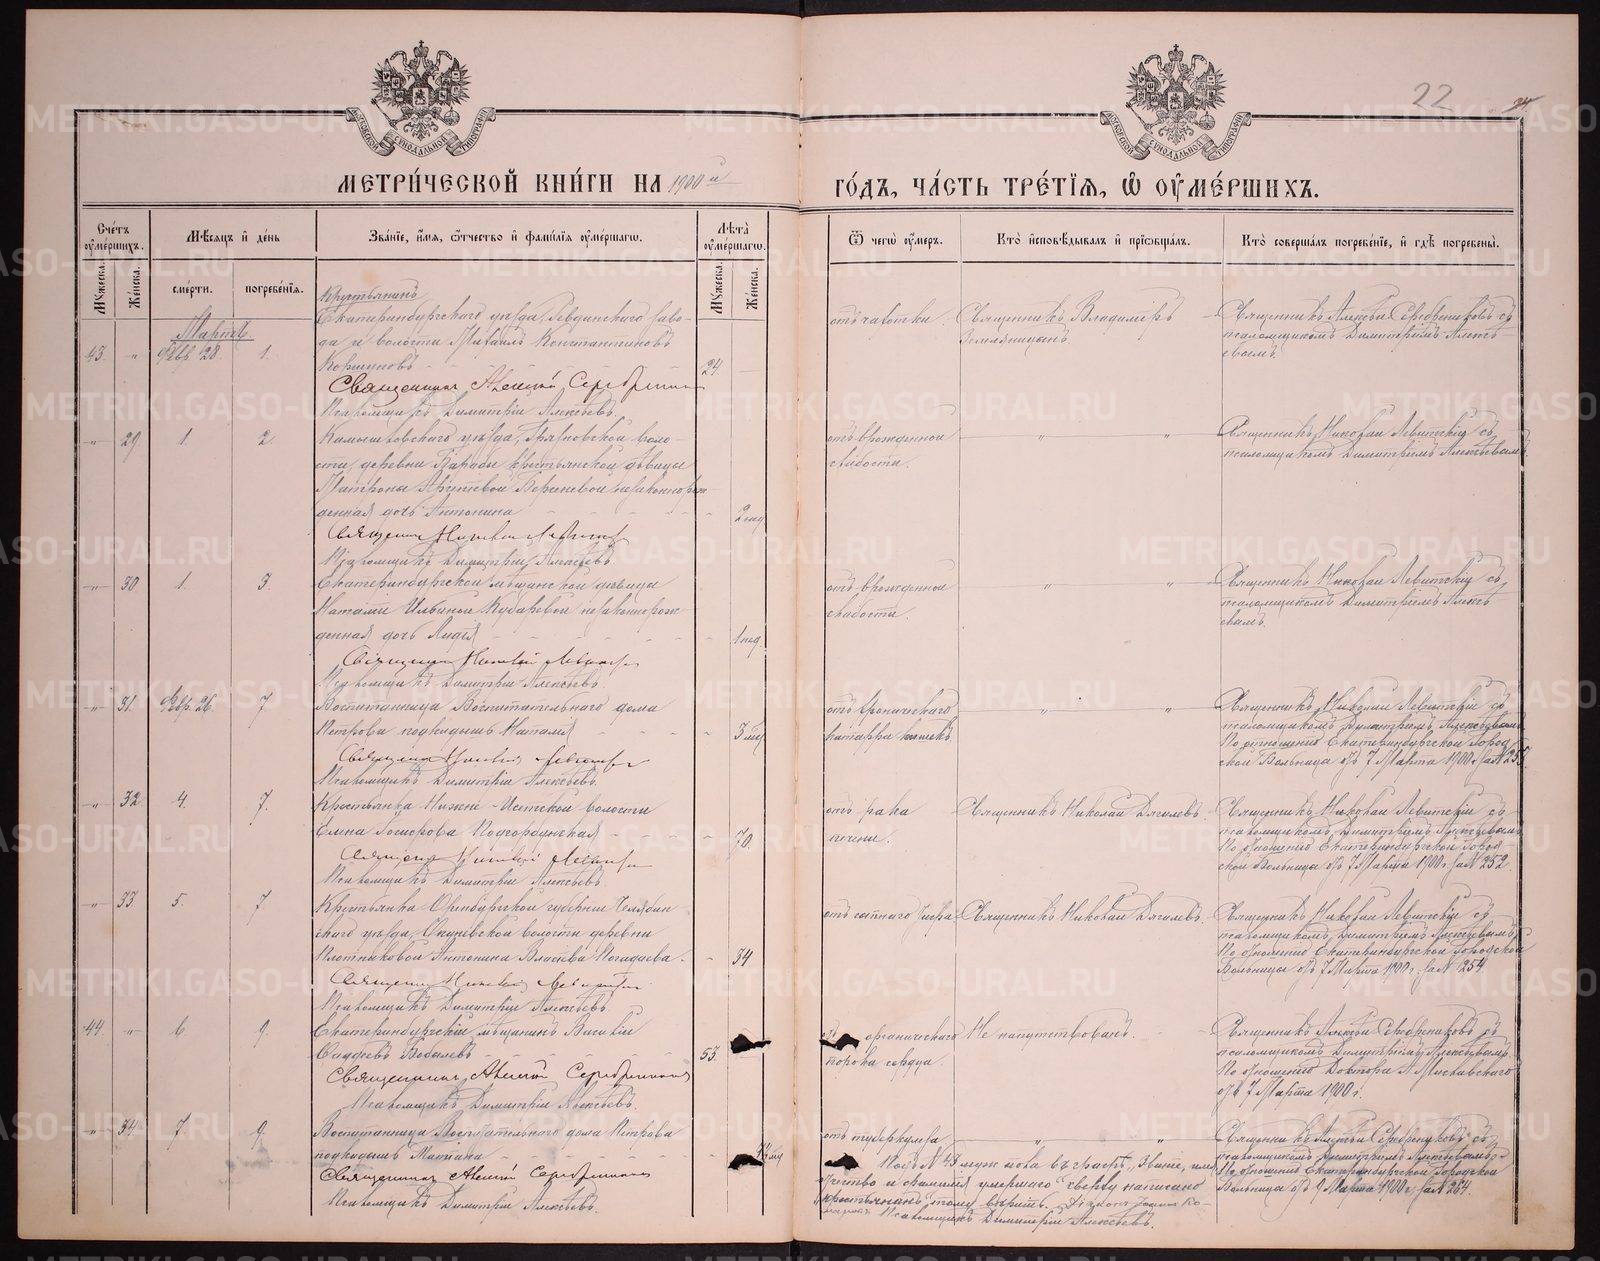 22
МЕТРИ́ЧЕСКОЙ КНИ́ГИ НА 1900 й
ГО́ДЪ, ЧА́СТЬ ТРЕ́ТІЯ, Ѡ ОУ҆МЕ́РШИХЪ.
Сче́тъ оу҆ме́ршихъ.
Мꙋжеска.
Же́нска.
Мѣсяцъ и де́нь
сме́рти.
погребе́нїя.
Зва́нїе, и҆́мя, ѻ҆́тчество и҆ фами́лїя оу҆ме́ршагѡ.
Лѣ́та оу҆ме́ршагѡ.
Мꙋжеска.
Же́нска.
Ѿ чегѡ̀ оу҆́меръ.
Кто̀ и҆сповѣ́дывалъ и҆ прїѡбща́лъ.
Кто̀ соверша́лъ погребе́нїе, и҆ гдѣ̀ погребены̀.
Мартъ
43. " Февр. 28. 1.
Крестьянинъ
Екатеринбургскаго уѣзда, Ревдинскаго заво-
да и волости Михаилъ Константиновъ
Коршуновъ 24
Священникъ Алексій Серебрениковъ
Псаломщикъ Димитрій Алексѣевъ.
отъ чахотки.
Священникъ Владиміръ
Земляницынъ
Священникъ Алексій Серебрениковъ съ
псаломщикомъ Димитріемъ Алексѣ-
евымъ.
" 29 1. 2.
Камышловскаго уѣзда, Грязновской воло-
сти, деревни крестьянской дѣвицы
Матроны незаконнорож-
денная дочь Антонина 2 нед.
Священникъ Николай Левитскій
Псаломщикъ Димитрій Алексѣевъ
отъ врожденной
слабости.
Священникъ Николай Левитскій съ
псаломщикомъ Димитріемъ Алексѣевымъ.
" 30 1. 3.
Екатеринбургской мѣщанской дѣвицы
Наталіи Ильиной незаконнорож-
денная дочь Лидія 1 нед.
Священникъ Николай Левитскій
Псаломщикъ Димитрій Алексѣевъ.
отъ врожденной
слабости.
Священникъ Николай Левитскій съ
псаломщикомъ Димитріемъ Алексѣ-
евымъ.
" 31. Февр. 26. 7
Воспитанница Воспитательнаго дома
Петрова подкидышъ Наталія 3 мѣс
Священникъ Николай Левитскій
Псаломщикъ Димитрій Алексѣевъ.
отъ хроническаго
катарра кишекъ.
Священникъ Николай Левитскій съ
псаломщикомъ Димитріемъ Алексѣевымъ
По отношенію Екатеринбургской Город-
ской Больницы отъ 7 Марта 1900 г. за №
" 32 4. 7.
Крестьянка Нижне-Исетской волости
Елена Подгорбунская 70.
Священникъ Николай Левитскій
Псаломщикъ Димитрій Алексѣевъ.
отъ рака
печени.
Священникъ Николай Дягилевъ.
Священникъ Николай Левитскій съ
псаломщикомъ Димитріемъ Алексѣевымъ
По отношенію Екатеринбургской Город-
ской Больницы отъ 7 Марта 1900 г. за № 252.
" 33 5. 7
Крестьянка Оренбургской губерніи Челябин-
скаго уѣзда, Окуневской волости деревни
Плотниковой Антонина Власіева Погадаева. 34
Священникъ Николай Левитскій
Псаломщикъ Димитрій Алексѣевъ
Священникъ Николай Дягилевъ.
Священникъ Николай Левитскій съ
псаломщикомъ Димитріемъ Алексѣевымъ
По отношенію Екатеринбургской Городской
Больницы отъ 7 Марта 1900 г. за № 254.
44 " 6 9.
Екатеринбургскій мѣщанинъ Василій
Бобылевъ 53.
Священникъ Алексій Серебрениковъ
Псаломщикъ Димитрій Алексѣевъ.
органическаго
порока сердца.
Не напутствованъ.
Священникъ Алексій Серебрениковъ съ
псаломщикомъ Димитріемъ Алексѣевымъ
По отношенію Доктора
отъ 7 Марта 1900 г.
" 34. 7. 9
Воспитанница Воспитательнаго дома Петрова
подкидышъ мѣс
Священникъ Алексій Серебрениковъ
Псаломщикъ Димитрій Алексѣевъ.
отъ туберкулеза
Священникъ Алексій Серебрениковъ съ
псаломщикомъ Димитріемъ Алексѣевымъ
По отношенію Екатеринбургской Городской
Больницы отъ 9 Марта 1900 г. за № 264.
Подъ № 43 муж. пола въ графѣ „Званіе, имя,
отчество и фамилія умершаго" сверху написано
„крестьянинъ" тому вѣрить.
Псаломщикъ Димитрій Алексѣевъ.
METRIKI.GASO-URAL.RU